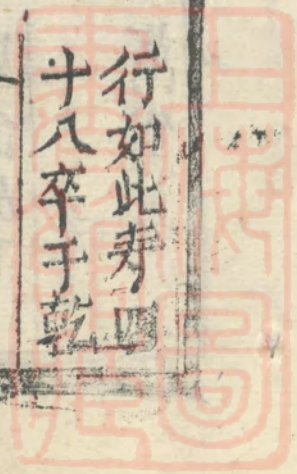 行如此寿四
十八卒于乾